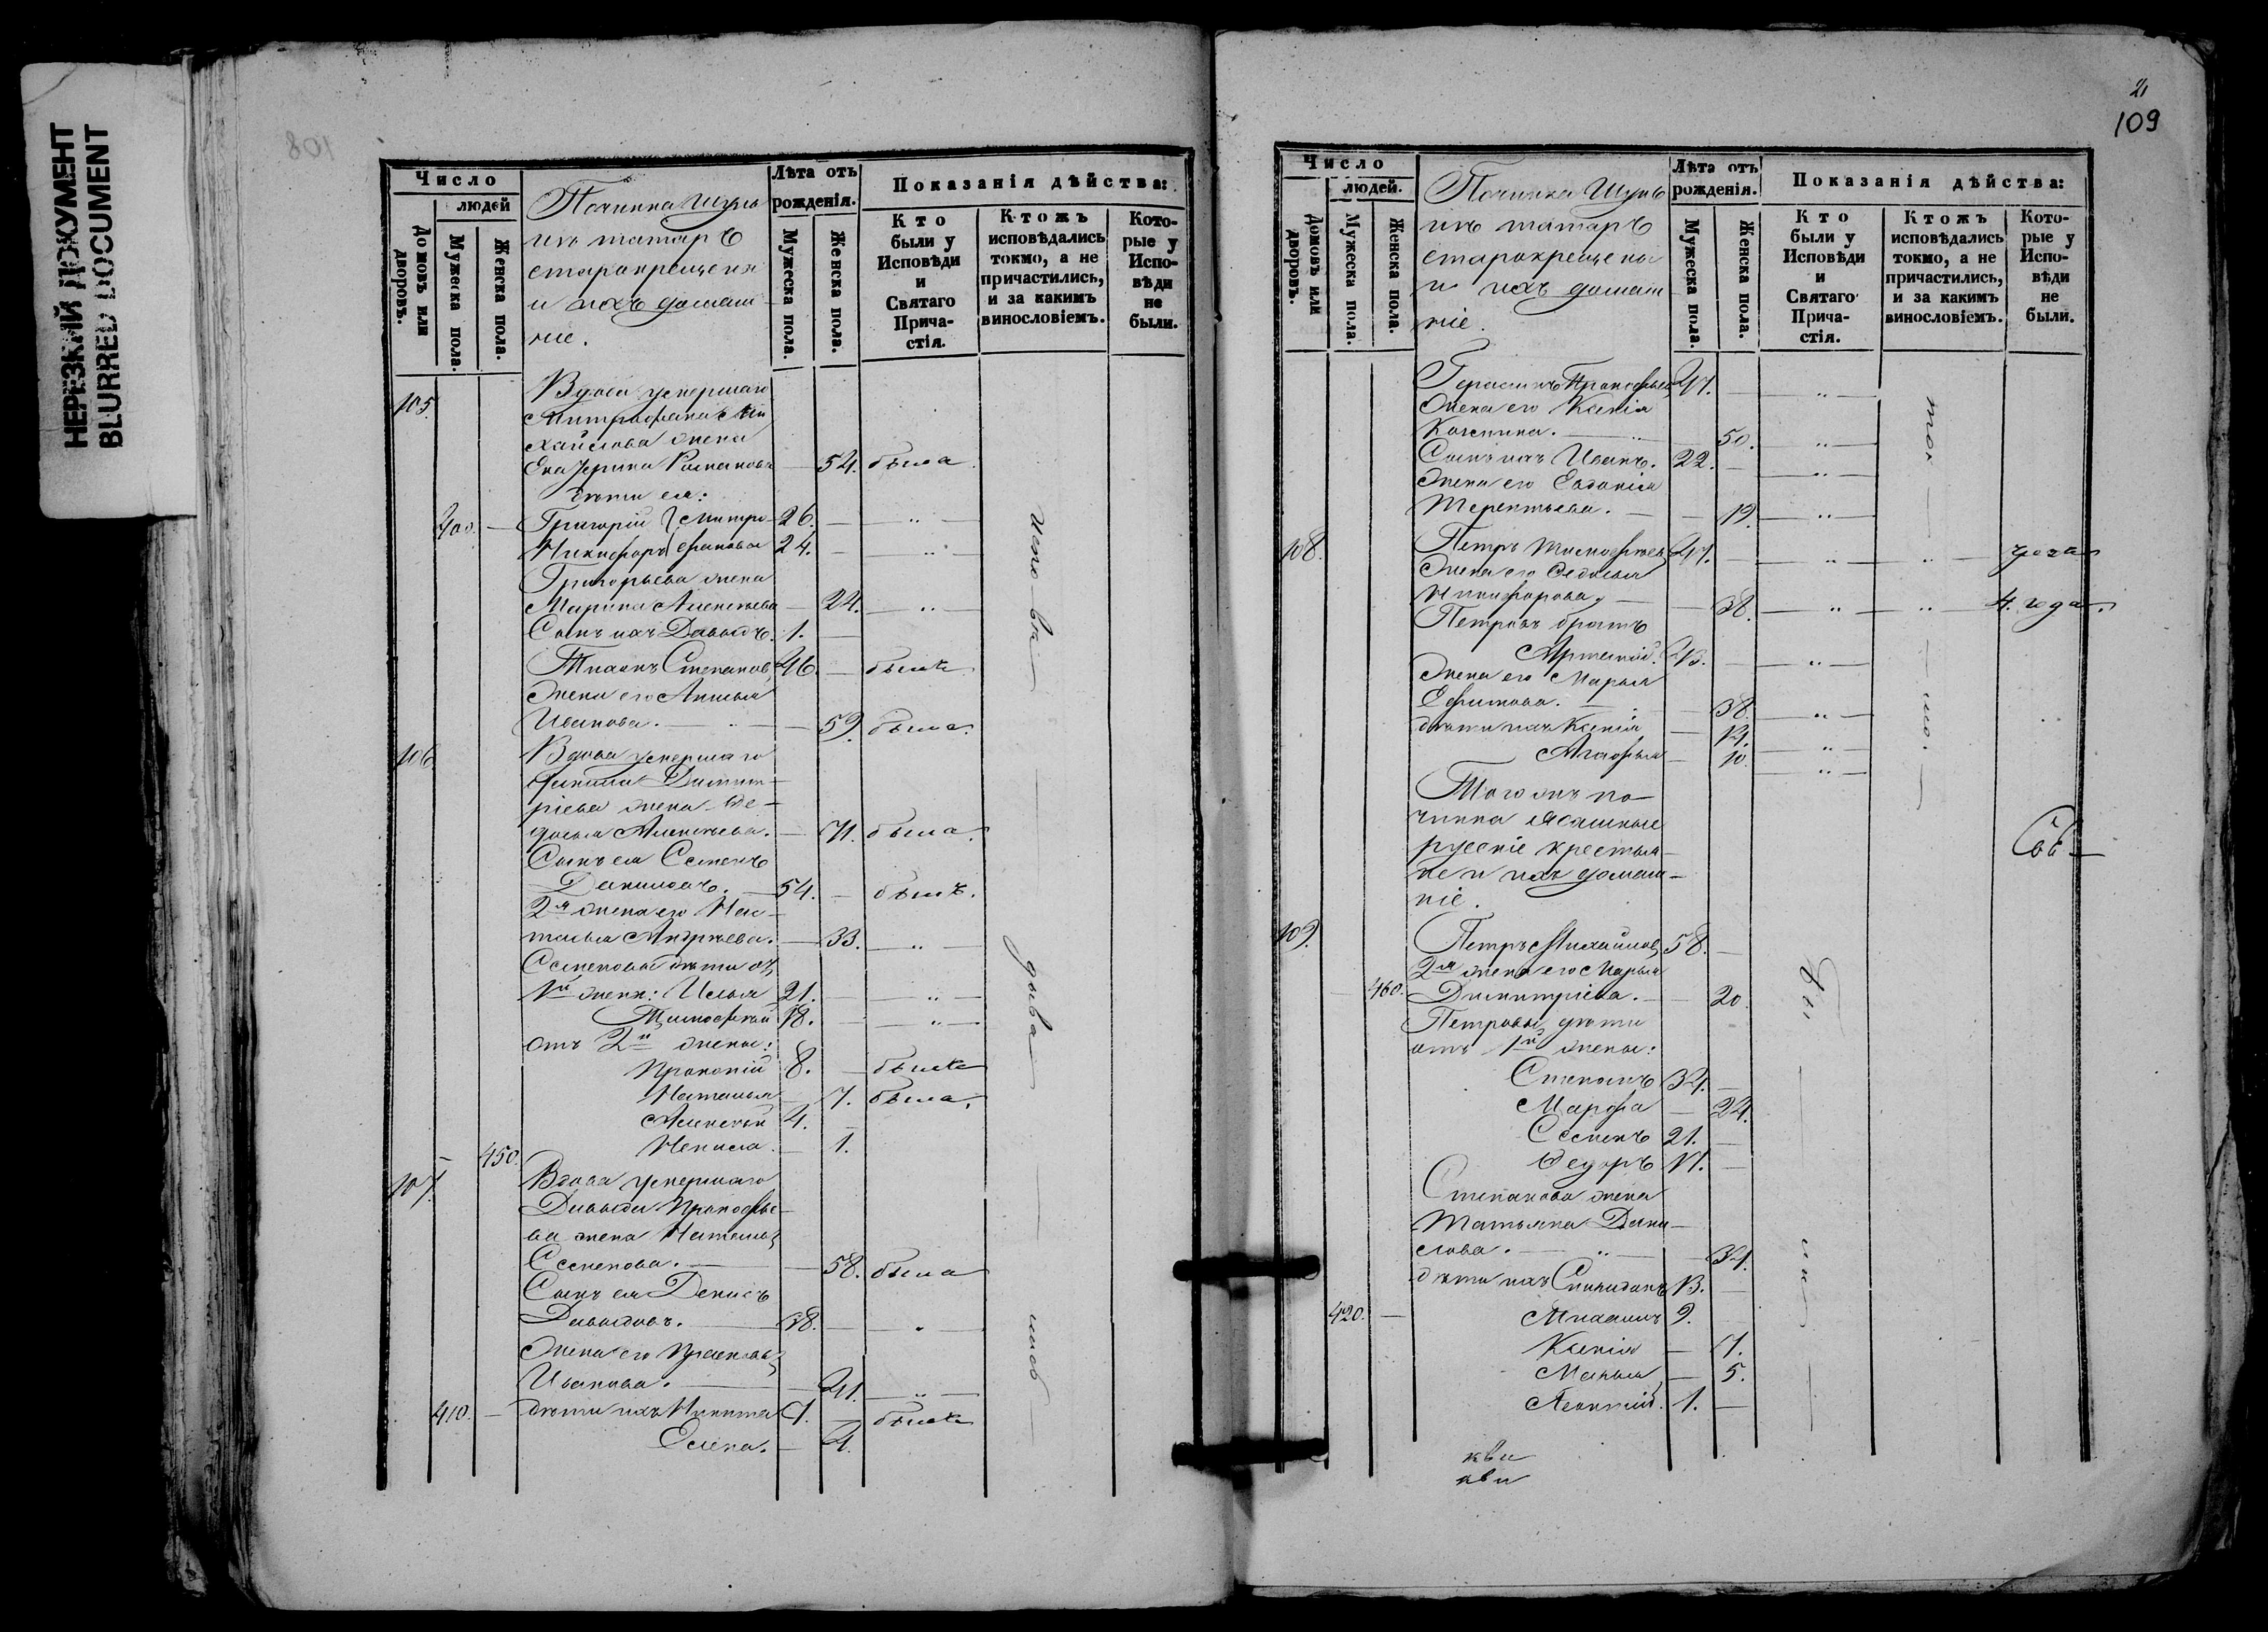 НЕРЕЗКИЙ ДОКУМЕНТ
BLURRED DOCUMENT
108
Число
людей
Домовъ или дворовъ.
Мужеска пола.
Женска пола.
Починка
татаръ
старокрещены
и ихъ домаш-
ніе.
Лѣта отъ рожденія.
Мужеска пола.
Женска пола.
Показанія дѣйства:
Кто были у Исповѣди и Святаго Прича-стія.
Ктожъ исповѣдались токмо, а не причастились, и за какимъ винословіемъ.
Кото-рые у Испо-вѣди не были.
105. Вдова умершаго
Митрофана Ми-
хайлова жена
Екатерина Романова — 54. была
дѣти ея:
400. — Григорій Митро- 26. — „ —
Никифоръ фановы 24. — „ —
Григорьева жена
Марина Алексѣева — 24. — „ —
Сынъ ихъ Давыдъ. 1. —
Степановъ 46. — былъ
Жена его Анисья
Иванова. — „ — 59. была.
106. Вдова умершаго
Данила Димит-
ріева жена Ѳе-
досья Алексѣева. — 71. была.
Сынъ ея Семенъ
Даниловъ. — 54. — былъ.
2я жена его Нас-
тасья Андреева. — 33. — „ —
Семеновы дѣти отъ
1й жены: Илья 21. — „ —
Тимофей 18. — „ —
отъ 2й жены:
Прокопій 8. — былъ
Наталья — 7. была.
Алексѣй 4. —
450. Ненила. — 1.
107. Вдова умершаго
Давыда Прокофье-
ва жена Наталья
Семенова. — 58. была
Сынъ ея Денисъ
Давыдовъ. — 38. — „ —
Жена его Прасковья
Иванова. — 41. — „ —
410. — дѣти ихъ Никита 7. — былъ
Елена. — 4.
исповѣдывались
109
Число
людей.
Домовъ или дворовъ.
Мужеска пола.
Женска пола.
Починка
татаръ
старокрещены
и ихъ домаш
ніе.
Лѣта отъ рожденія.
Мужеска пола.
Женска пола.
Показанія дѣйства:
Кто были у Исповѣди и Святаго Прича-стія.
Ктожъ исповѣдались токмо, а не причастились, и за какимъ винословіемъ.
Кото-рые у Испо-вѣди не были.
Герасимъ Прокофьевъ 47. — „ —
Жена его Ксенія
Козмина. — „ 50. — „ —
Сынъ ихъ Иванъ. 22. — „ —
Жена его Евдокія
Терентьева. — 19. — „ —
108. Петръ Тимофеевъ 47. — „ — „ —
Жена его Ѳедосья
Никифорова. — 38. — „ — „ — 4. года.
Петровъ братъ
Артемій. 43. — „ —
Жена его Марья
Ефимова. — 38. — „ —
дѣти ихъ Ксенія — „ —
Агафья — 10. — „ —
Тогожъ по-
чинка ясашные
русскіе крестья-
не и ихъ домаш-
ніе.
109. Петръ Михайловъ 58. —
2я жена его Марья
460. Димитріева. — 20.
Петровы дѣти
отъ 1й жены:
Степанъ 34. —
Марфа — 24.
Семенъ 21. —
Ѳедоръ 17. —
Степанова жена
Татьяна Дани-
лова. — „ — 34.
дѣти ихъ Спиридонъ 13. —
420. — Михаилъ 9.
Ксенія — 7.
Марья — 5.
Леонтій. 1. —